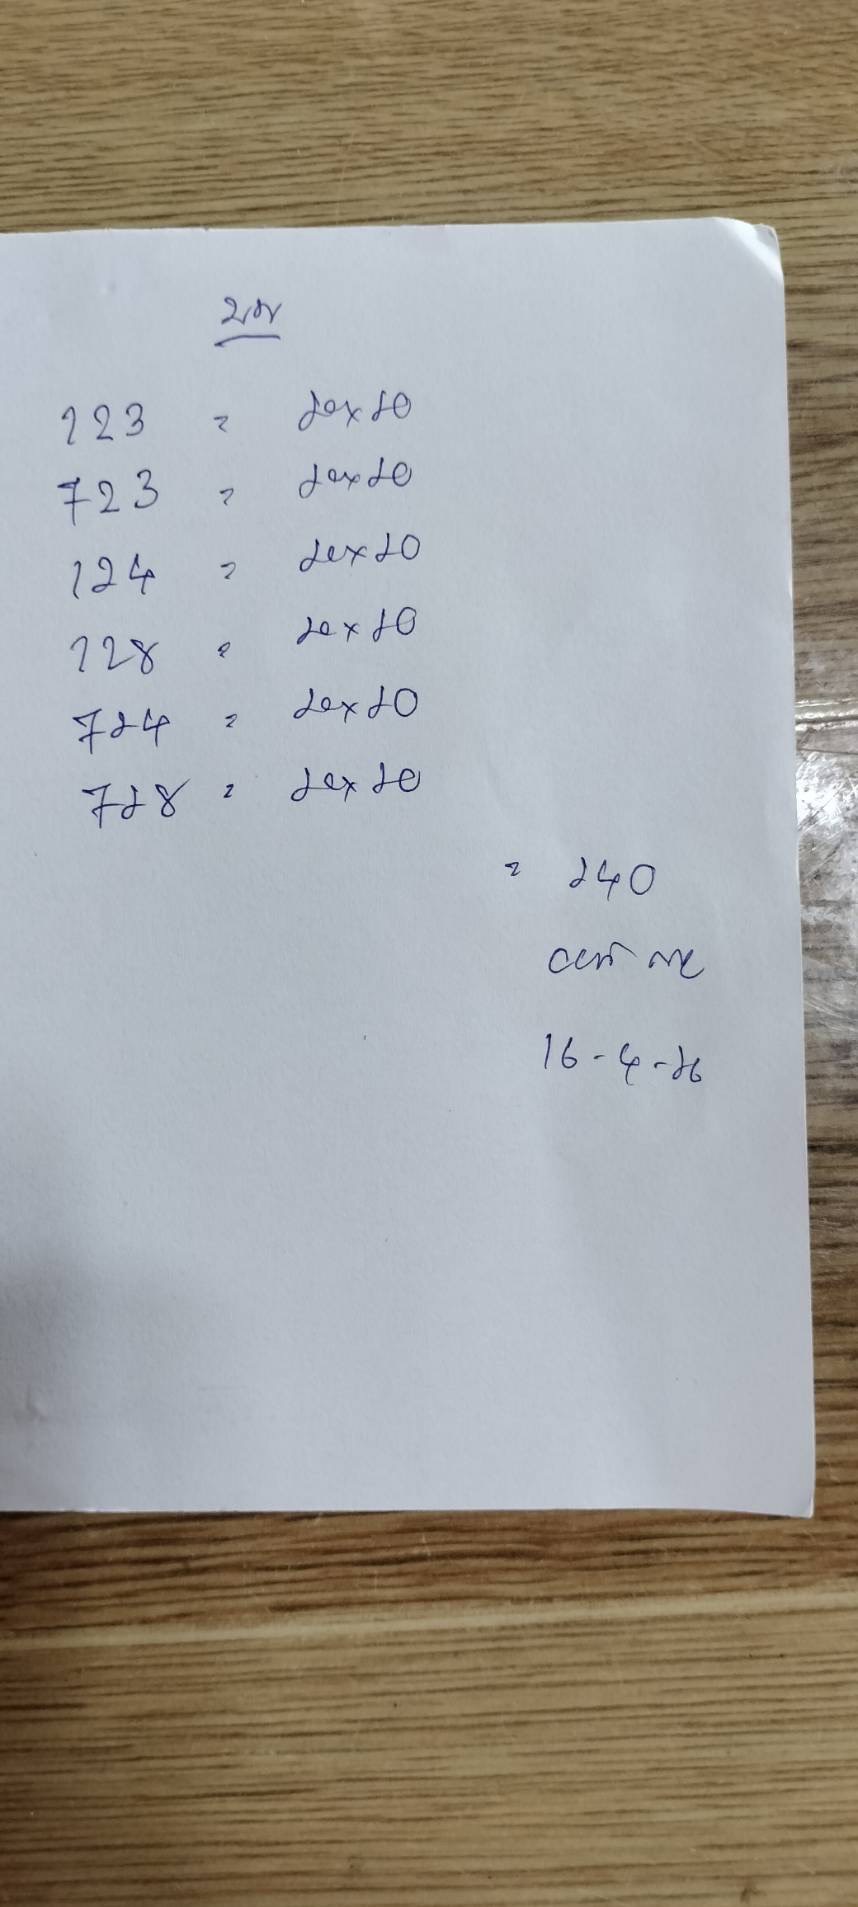 บน
123 = 20x20
723 = 20x20
124 = 20x20
128 = 20x20
724 = 20x20
728 = 20x20
= 240
16-4-26